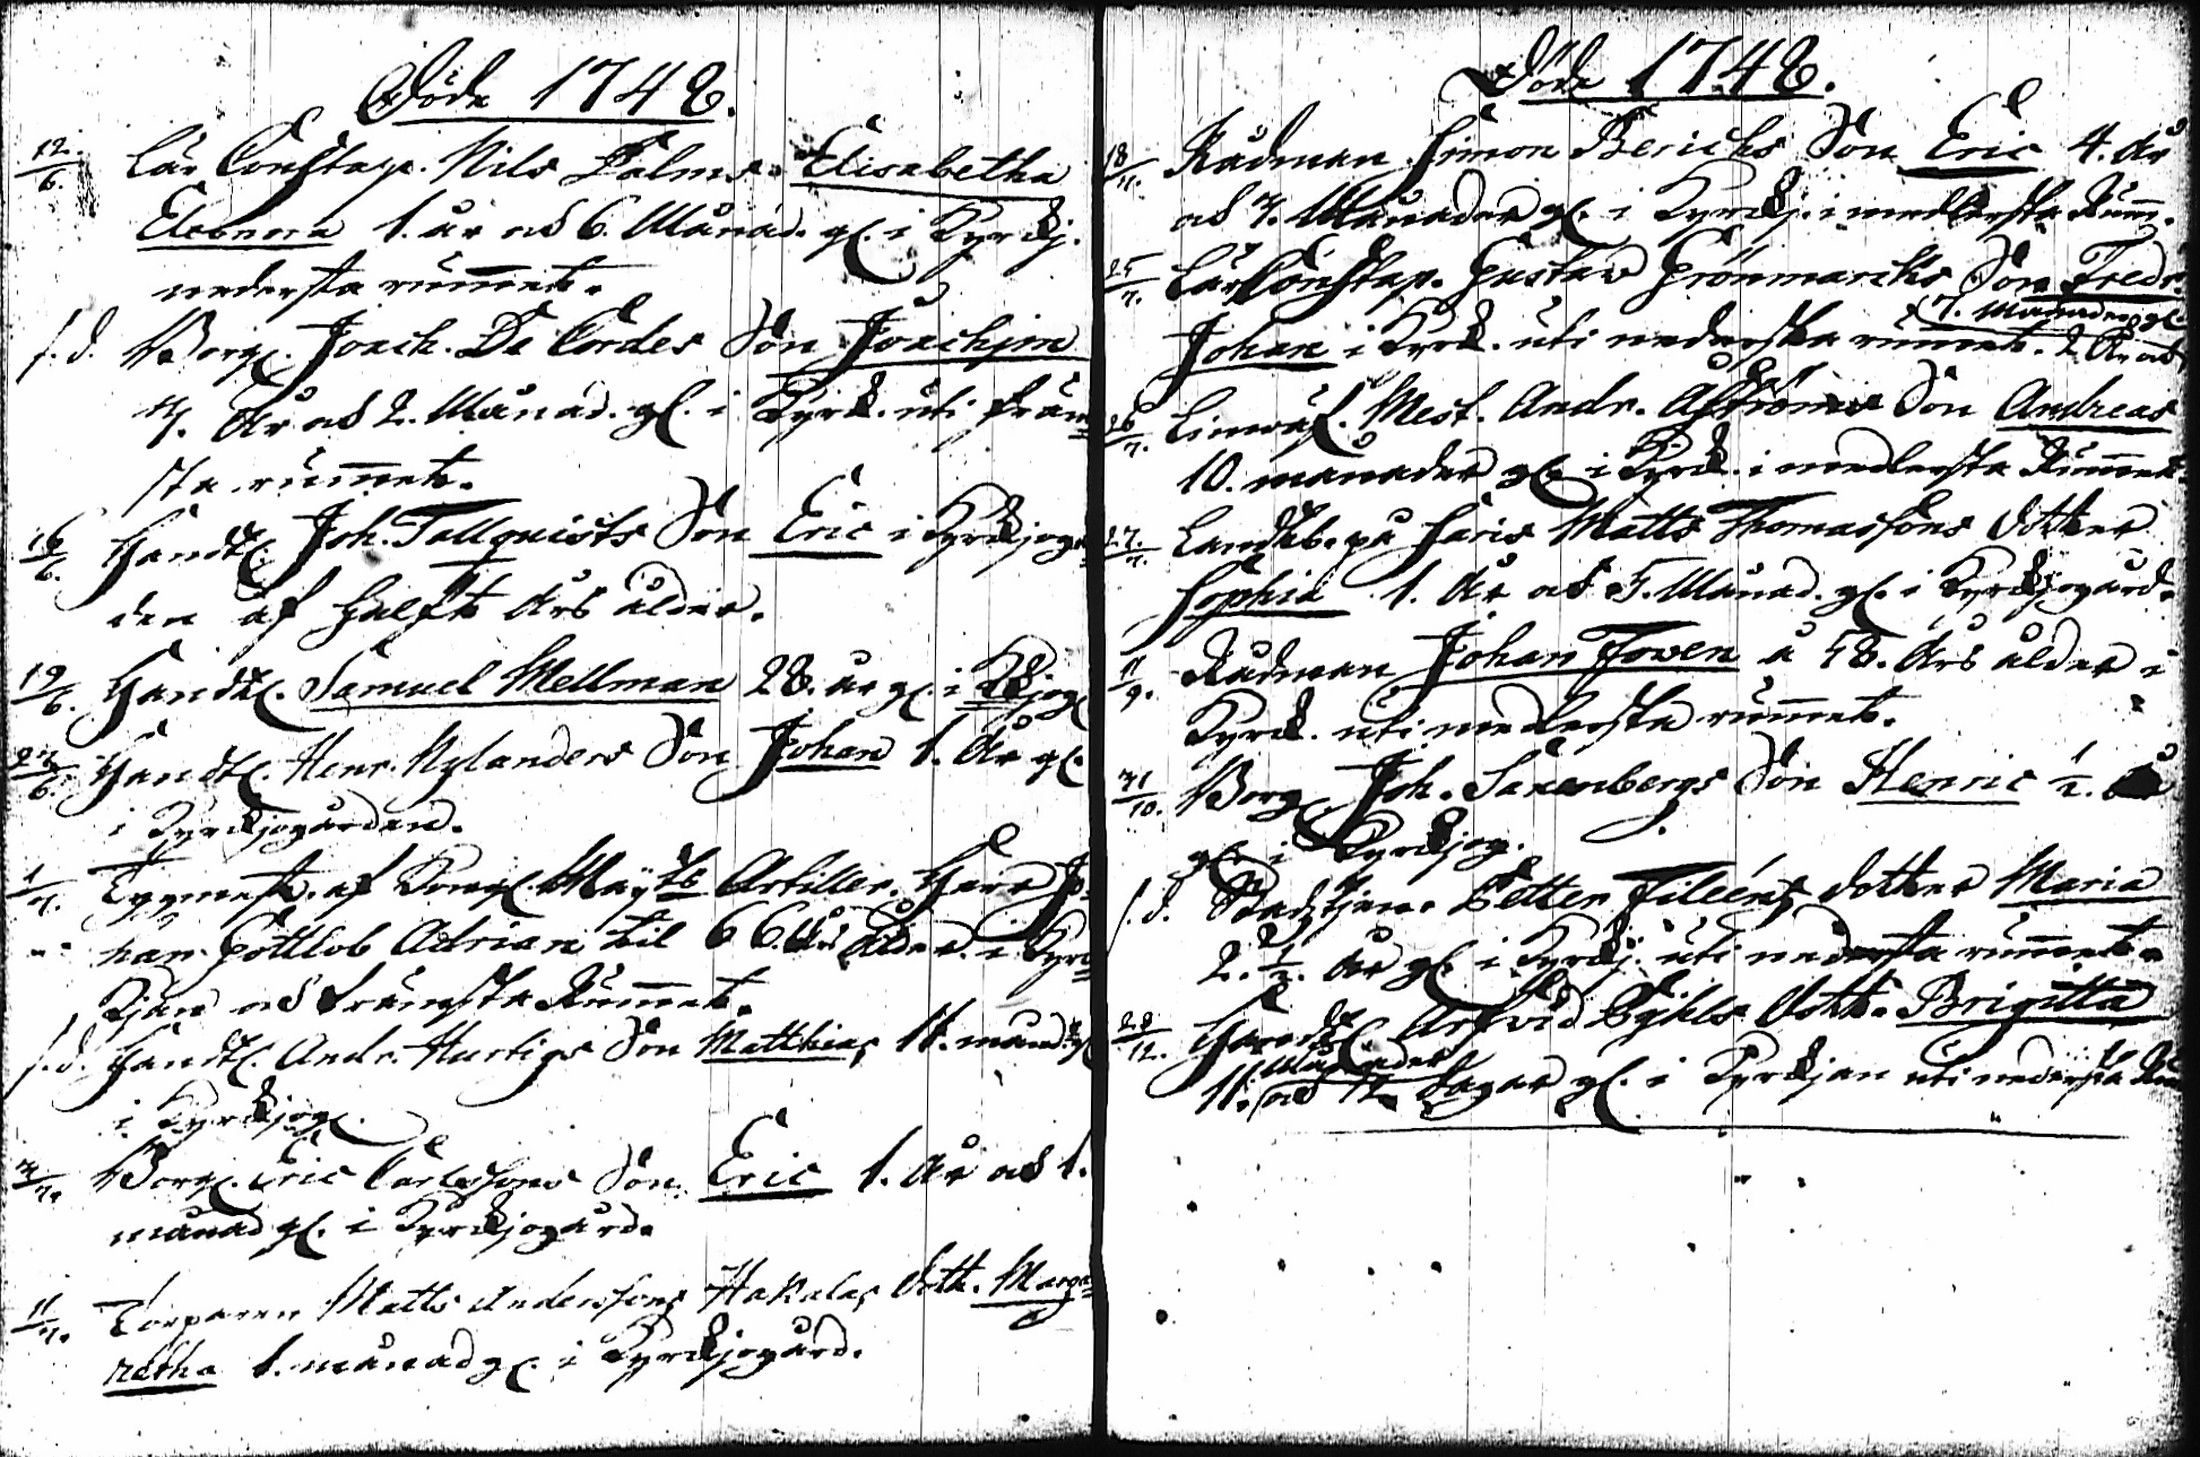 Döde 1748.
12/6. Lär Constap. Nils Palms Elisabetha
Eleonora 1. år och 6. Månad. gl. i Kyrkj.
nedersta rummet.
s. d. Borg. Joach. De Cordes Son Joachim
7. År och 2. Månad. gl. i Kyrk. uti främ
sta rummet.
16/6. Handl. Joh. Tallquists Son Eric i Kyrkjog
den af halft Års ålder.
19/6. Handl. Samuel Mellman 28. år gl. i Kkjog
27/6. Handl. Henr. Nylanders Son Johan 1. År gl.
i Kyrkjogården.
1/7. Tygmest. af Kongl. May:ts Artiller. Herr Jo
han Gottlob Adrian til 66. Års Ålder. i Kyrk
kjan och främsta Rummet.
s. d. Handl. Andr. Hurtigs Son Matthias 11. månad. gl
i Kyrkjog.
7/7. Borg. Eric Carlssons Son Eric 1. År och 1.
månad gl. i Kyrkjogård.
11/7. Torparen Matts Anderssons Hakalas Dott. Marga
retha 1. månad gl. i Kyrkjogård.
Döde 1748.
18/7. Rådman Simon Berichs Son Eric 4. År
och 7. Månader gl. i Kyrkj. i medlersta Rumm.
25/7. Lär Constap. Gustav Grönmarcks Son Fredr.
7. Månader gl.
Johan i Kyrk. uti nedersta rummet. 2 År och
26/7. Linwäf. Mest. Andr. Aströms Son Andreas
10. månader gl. i Kyrk. i medlersta Rummet.
27/7. Landtb. på Haris Matts Thomassons dotter
Sophia 1. År och 5. Månad. gl. i Kyrkjogård.
11/9. Rådman Johan Forsen å 58. Års ålder i
Kyrk. uti medlersta rummet.
31/10. Borg. Joh. Sarenbergs Son Henric 1/2. år
gl. i Kyrkjog.
s. d. Stadstjen. Petter Fileens dotter Maria
2. 1/2. År gl. i Kyrkj. uti nedersta rummet.
28/12. Handl. Arfvid Pihls Dott. Brigitta
Månader
11. och 12. Dagar gl. i Kyrkjan uti nedersta Rum